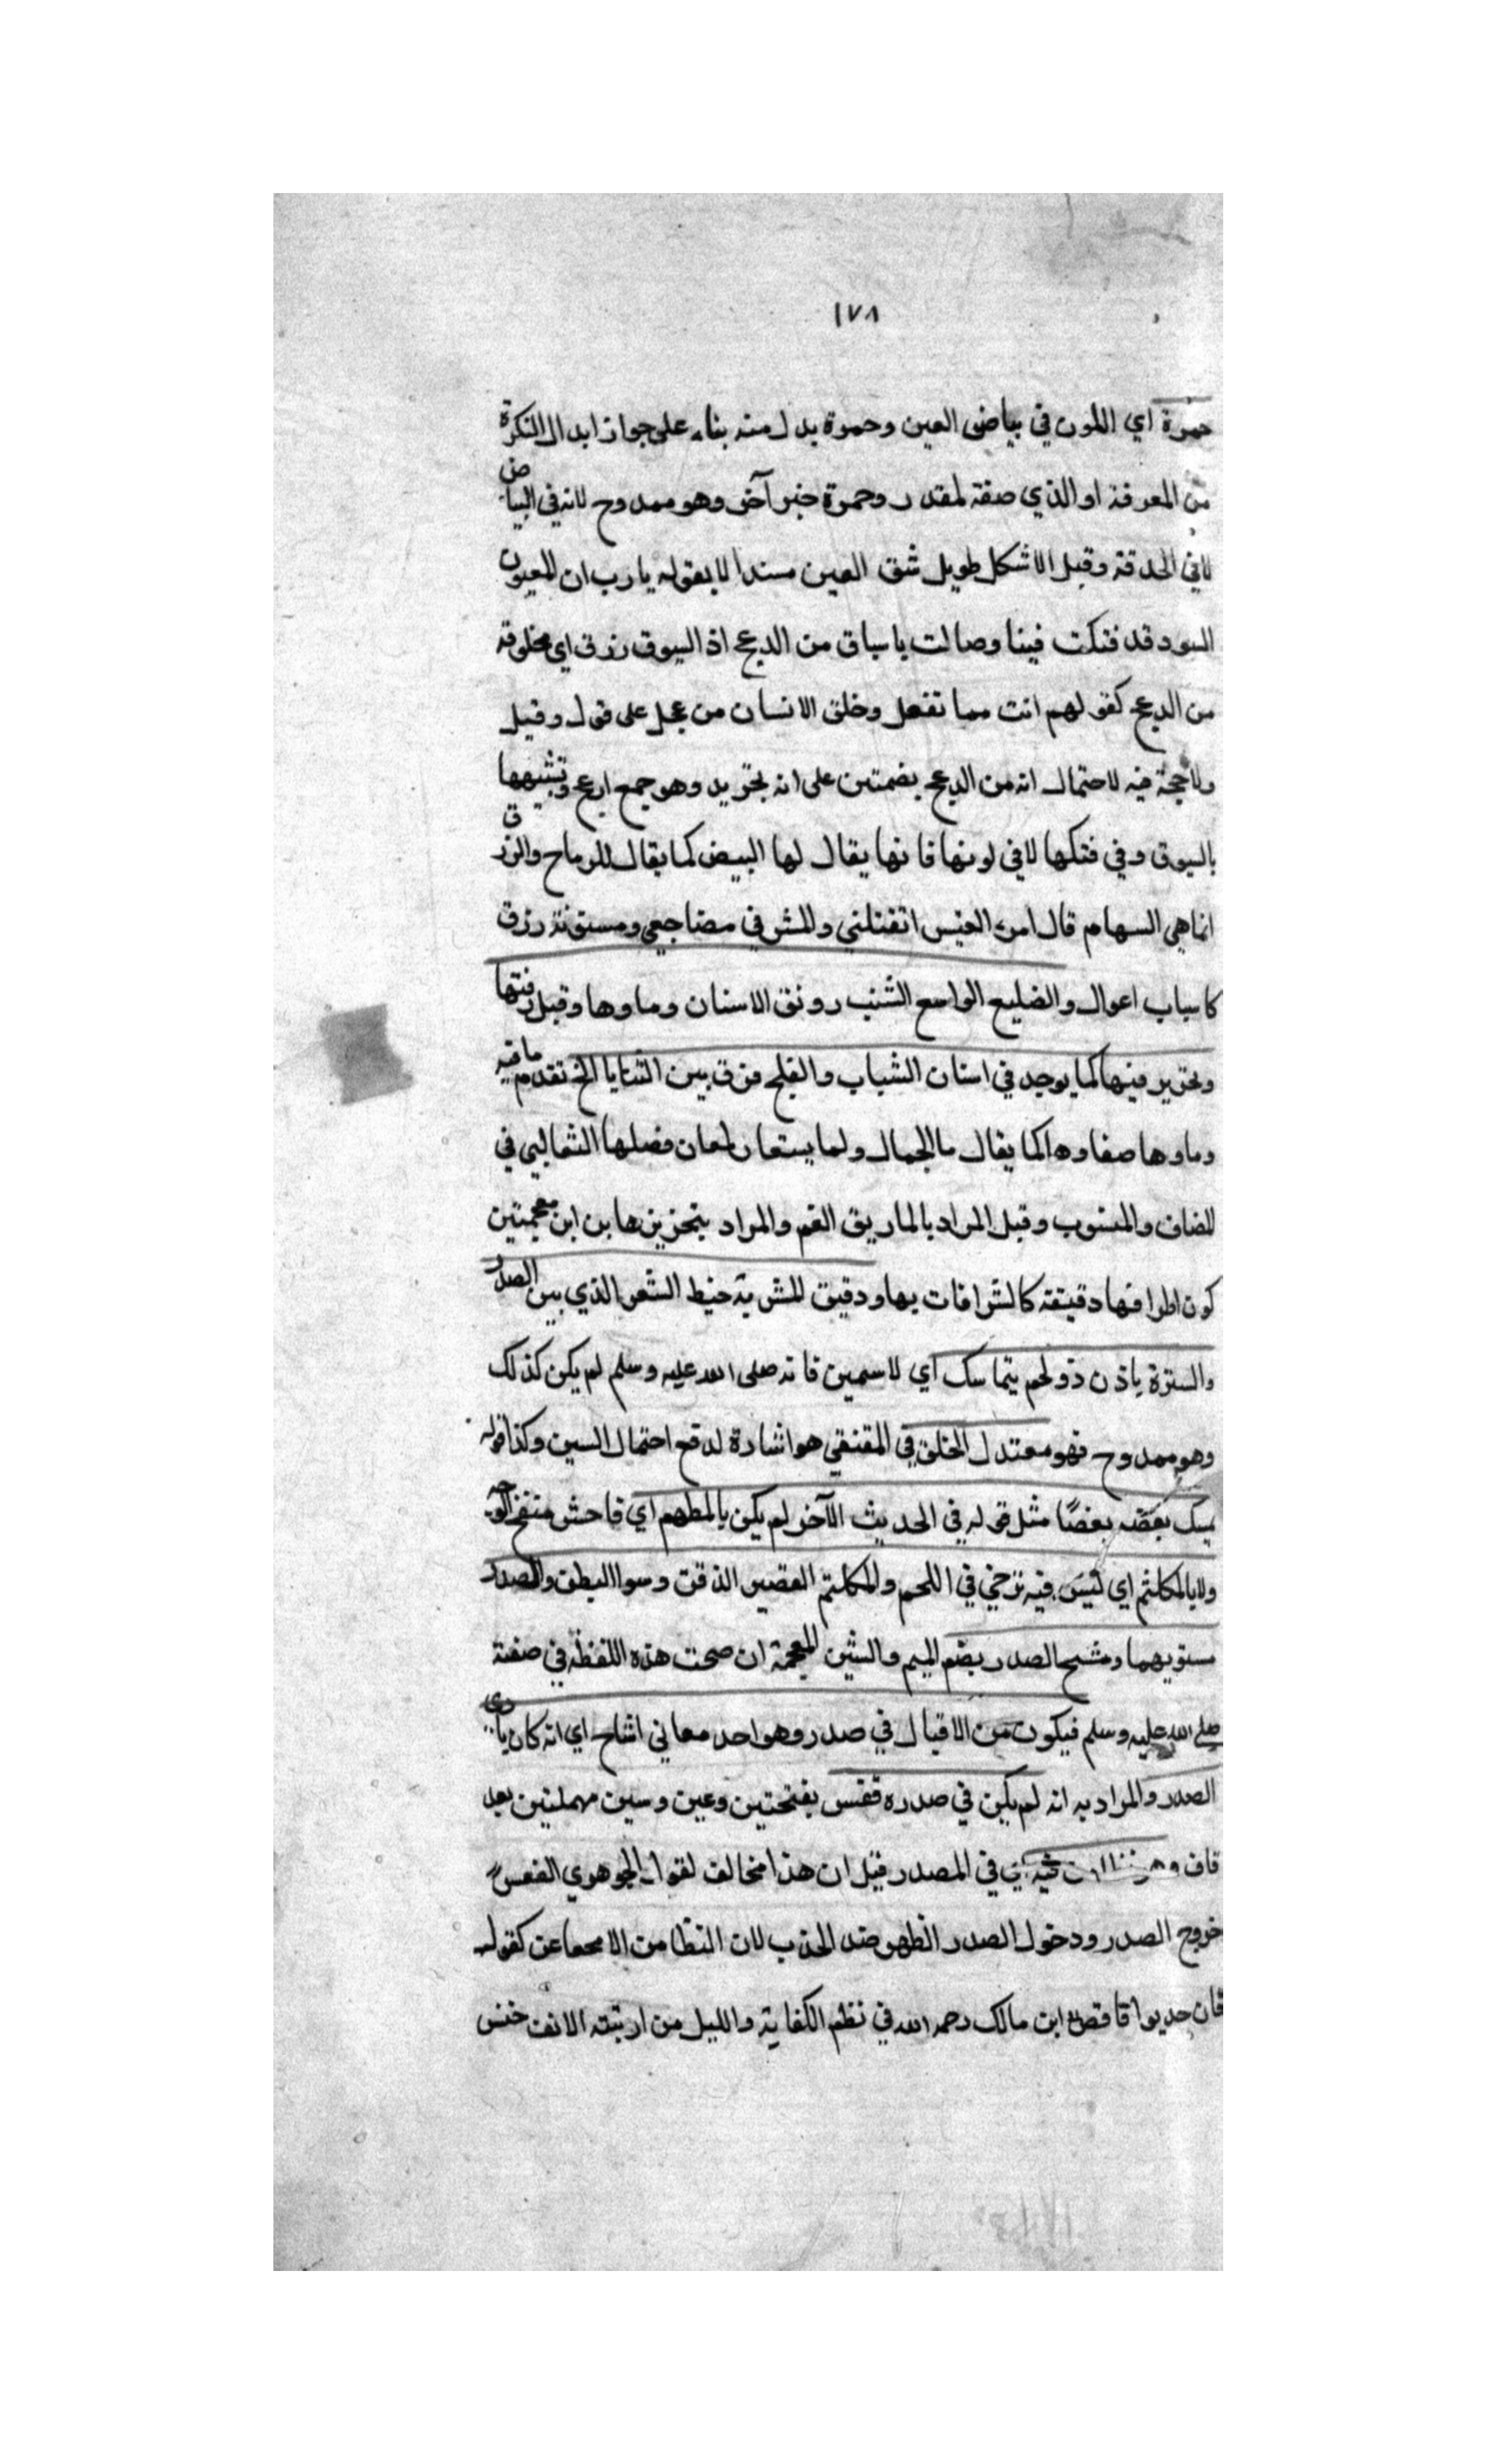 ١٧٨
حمرة اي اللون في بياض العين وحمرة بدل منه بناء على جواز ابدال النكرة
من المعرفة او الذي صفة لمقدر وحمرة خبر آخر وهو ممدوح لانه في البياض
لا في الحدقة وقيل الاشكل طويل شق العين مستدلا بقوله يا رب ان العيون
السود قد فتكت فينا وصالت باسياق من الدعج اذ السيوق زرق اي مخلوقة
من الدعج كقولهم انت مما تفعل وخلق الانسان من عجل على قول وقيل
ولا حجة فيه لاحتمال انه من الدعج بضمتين على انه تجريد وهو جمع ادعج وتشبيهها
بالسيوق وفي فتكها لا في لونها فانها يقال لها البيض كما يقال للرماح والزرق
انما هي السهام قال امرء القيس اتقتلني والمشرفي مضاجعي ومسنونة زرق
كانياب اغوال والضليع الواسع الشنب رونق الاسنان وماوها وقيل رقتها
وتحزيز فيها كما يوجد في اسنان الشباب والفلج فرق بين الثنايا الخ تقدم ما فيه
وماوها صفاوها كما يقال ما الجمال ولما يستعار لمعان فصلها الثعالبي في
المضاف والمنسوب وقيل المراد بالماريق الفم والمراد بتحزيزها بزاين معجمتين
كون اطرافها دقيقة كالشرافات بها ودقيق المشربة خيط الشعر الذي بين الصدر
والسترة بادن ذو لحم يتماسك اي لا سمين فانه صلى الله عليه وسلم لم يكن كذلك
وهو ممدوح فهو معتدل الخلق في المقتفي هو اشارة لدفع احتمال السين وكذا قوله
يمسك بعضه بعضًا مثل قوله في الحديث الآخر لم يكن بالمطهم اي فاحش منتفخ الوجه
ولا بالمكلثم اي ليس فيه ترخي في اللحم والمكلثم القصير الذقن وسوا البطن والصدر
مستويهما ومشيح الصدر بضم الميم والشين المعجمة ان صحت هذه اللفظة في صفته
صلى الله عليه وسلم فيكون من الاقبال في صدر وهو احد معاني اشاح اي انه كان بادي
الصدر والمراد به انه لم يكن في صدره قعس بفتحتين وعين وسين مهملتين بعد
قاف في المصدر قيل ان هذا مخالف لقول الجوهري القعس
خروج الصدر ودخول الصدر الظهر ضد الحدب لان كقوله
ابن مالك رحمه الله في نظم الكفاية والليل من ارتبته الانف خنس